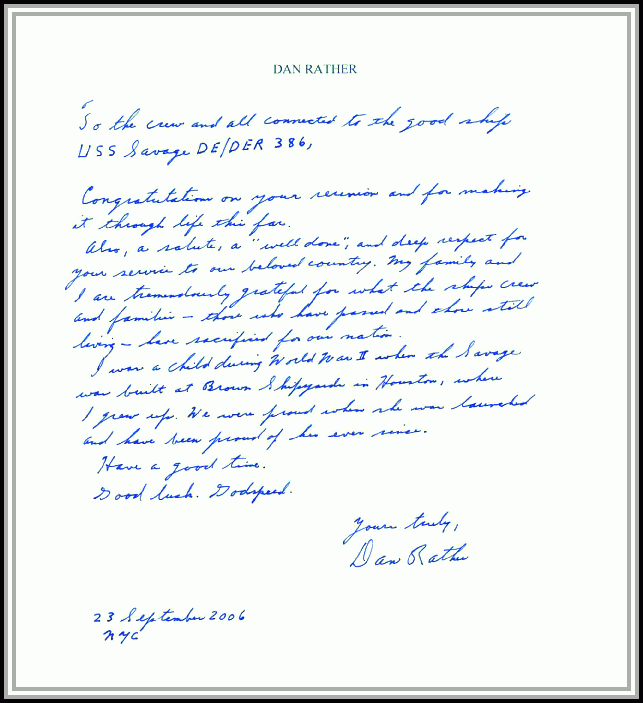 DAN RATHER
To the crew and all connected to the good ship
USS Savage DE/DER 386,
Congratulations on your reunion and for making
it through life this far.
Also, a salute, a "well done", and deep respect for
your service to our beloved country. My family and
I are tremendously grateful for what the ships crew
and families - those who have passed and those still
living - have sacrificed for our nation.
I was a child during World War II when the Savage
was built at Brown Shipyards in Houston, where
I grew up. We were proud when she was launched
and have been proud of her ever since.
Have a good time.
Good luck. Godspeed.
Yours truly,
Dan Rather
23 September 2006
NYC